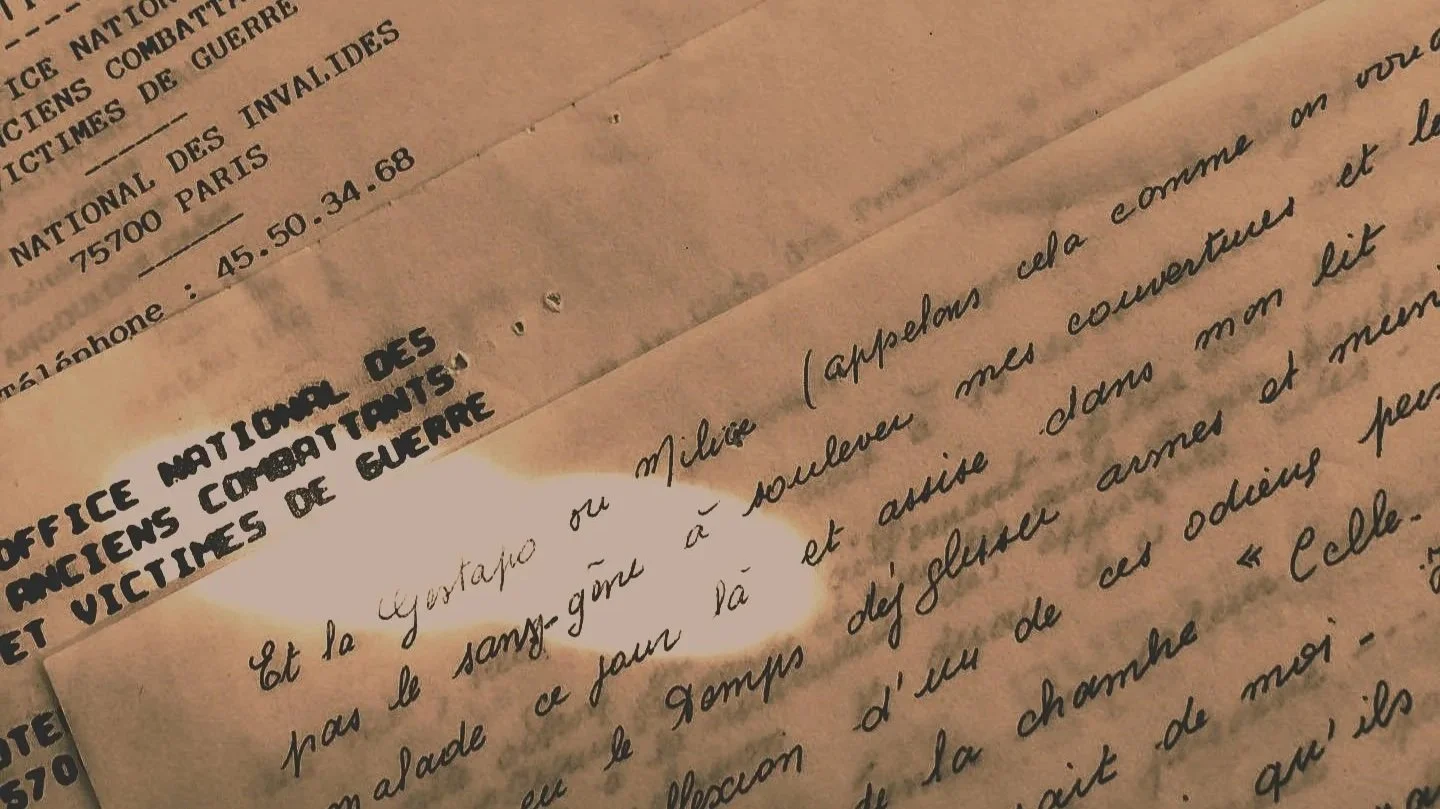 ICE NATION
NCIENS COMBATTA
VICTIMES DE GUERRE
NATIONAL DES INVALIDES
75700 PARIS
Téléphone : 45.50.34.68
OFFICE NATIONAL DES
ANCIENS COMBATTANTS
ET VICTIMES DE GUERRE
OTE
570
Et la Gestapo ou Milice (appelons cela comme on voud
pas le sans-gêne à soulever mes couvertures et le
malade ce jour là et assise dans mon lit
eu le temps de glisser armes et muni
flexion d'un de ces odieux pers
de la chambre « Celle-
ait de moi -
qu'ils